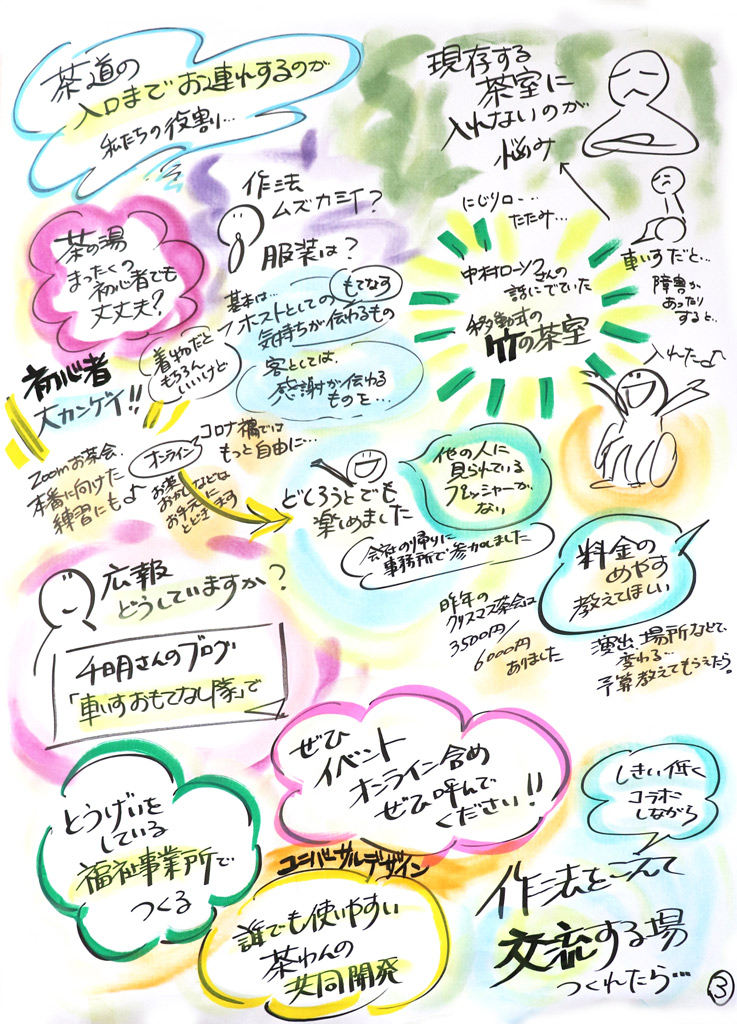 茶道の
入口までお連れするのが
私たちの役割…
現存する
茶室に
入れないのが
悩み
作法
ムズカシイ?
服装は?
茶の湯
まったくの
初心者でも
丈丈夫?
にじり口…
たたみ…
車いすだと…
障害が
あったり
すると…
中村ローソクさんの
話にでていた
移動式の
竹の茶室
入れたー♪
基本は…
もてなす
ホストとしての
気持ちが伝わるもの
着物だと
もちろん
いいけど
客としては、
感謝が伝わる
ものを…
初心者
大カンゲイ!!
Zoomお茶会、
本番に向けた
練習にも♪
オンライン
コロナ禍では
もっと自由に…
お茶
おかしなどは
お手元に
とどきます
どしろうとでも
楽しめました
他の人に
見られている
プレッシャーが
ない
会社の帰りに
事務所で参加しました
料金の
めやす
教えてほしい
昨年の
クリスマス茶会は
3500円/
6000円
ありました
演出、場所などで、
変わる…
予算教えてもらえたら!
広報
どうしていますか?
千日月さんのブログ
「車いすおもてなし隊」で
ぜひ
イベント
オンライン含め
ぜひ呼んで
ください!!
とうげいを
している
福祉事業所で
つくる
ユニバーサルデザイン
誰でも使いやすい
茶わんの
共同開発
しきい低く
コラボ
しながら
作法をこえて
交流する場
つくれたら…
3